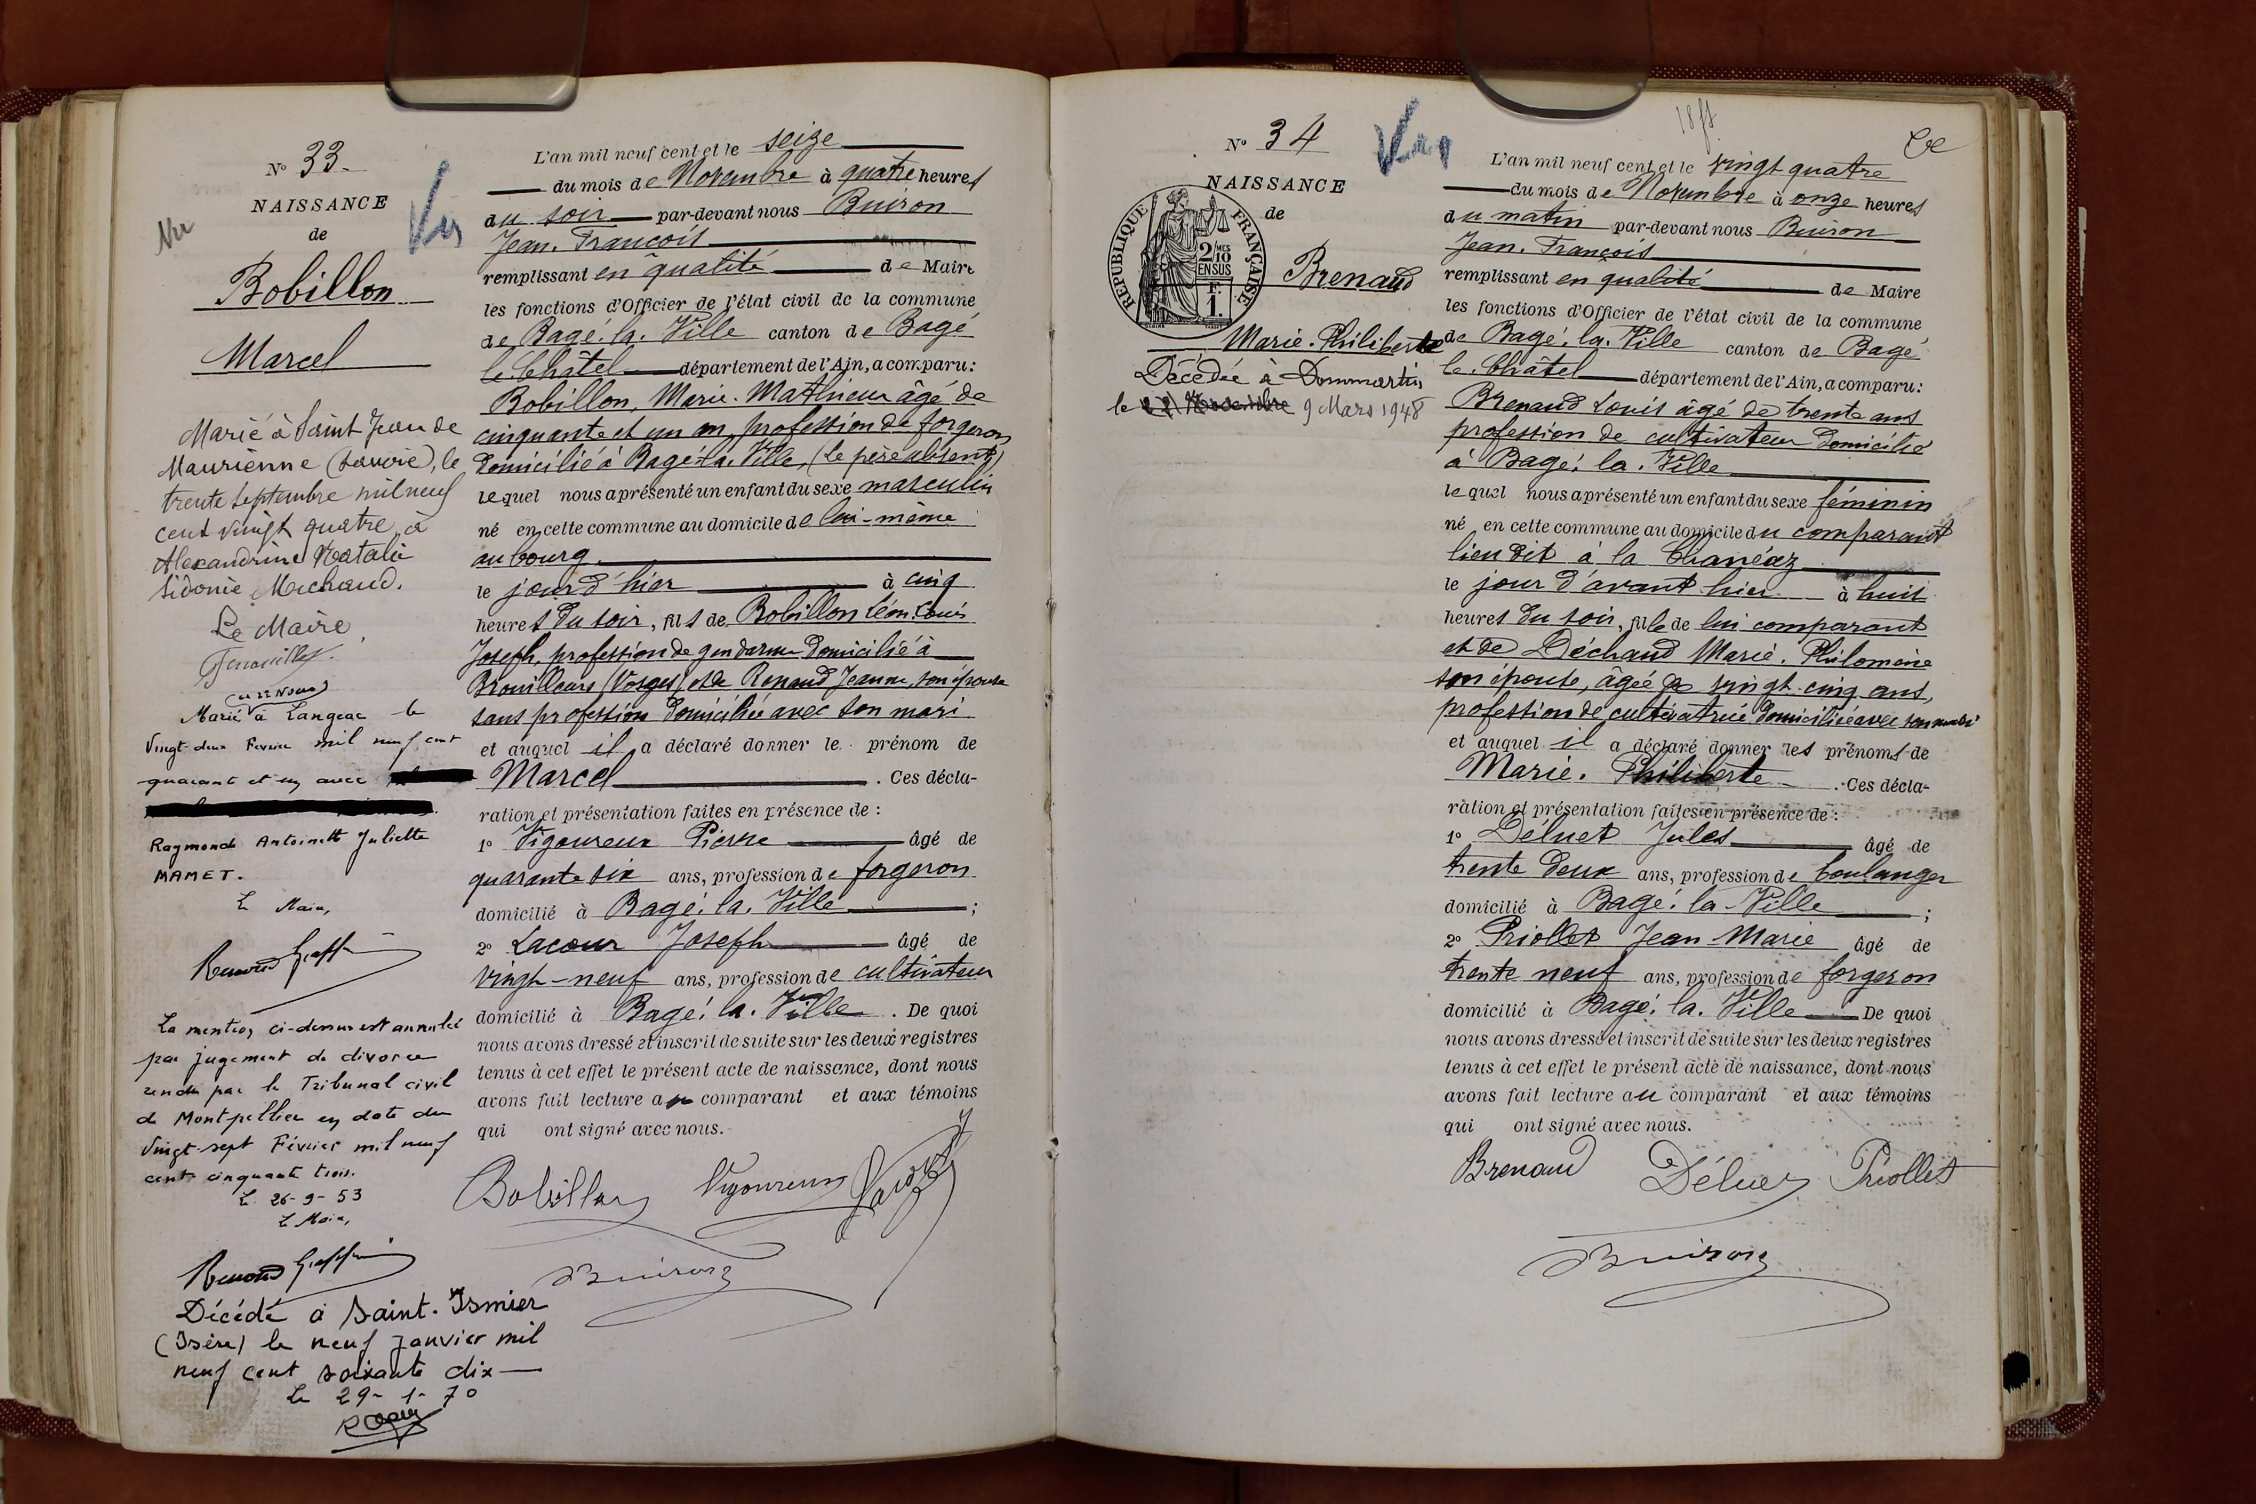 N° 33.
NAISSANCE
de
Bobillon
Marcel
Marié à Saint Jean de
Maurienne (Savoie), le
trente Septembre mil neuf
cent vingt quatre, à
Alexandrine Natalie
Sidonie Michaud.
Le Maire,
Marié à Langeac le
vingt-deux Fevrier mil neuf cent
quarant et un avec
Raymonde Antoinette Juliette
MAMET.
Le Maire,
La mention ci-dessus est annulée
par jugement de divorce
rendu par le Tribunal civil
de Montpellier en date du
vingt-sept Février mil neuf
cent cinquante trois.
Le 26-9-53
Le Maire,
Décédé à Saint-Ismier
(Isère) le neuf janvier mil
neuf cent soixante dix —
Le 29-1-70
Vu
L'an mil neuf cent et le seize
du mois de Novembre à quatre heures
du soir par-devant nous Buiron
Jean. François
remplissant en qualité de Maire
les fonctions d'Officier de l'état civil de la commune
de Bagé. la. Ville canton de Bagé
le Châtel département de l'Ain, a comparu:
Bobillon, Marie. Mathieu âgé de
cinquante et un an, profession de forgeron
domicilié à Bagé-la. Ville, (le père absent)
lequel nous a présenté un enfant du sexe masculin
né en cette commune au domicile de lui-même
au bourg
le jour d'hier à cinq
heures du soir, fils de Bobillon Léon. Louis
Joseph, profession de gendarme domicilié à
Brouillours (Vosges) et de Renaud Jeanne, son épouse
sans profession domiciliée avec son mari
et auquel il a déclaré donner le prénom de
Marcel. Ces décla-
ration et présentation faites en présence de :
1° Vigoureux Pierre âgé de
quarante six ans, profession de forgeron
domicilié à Bagé. la. Ville ;
2° Lacour Joseph âgé de
vingt-neuf ans, profession de cultivateur
domicilié à Bagé. la. Ville. De quoi
nous avons dressé et inscrit de suite sur les deux registres
tenus à cet effet le présent acte de naissance, dont nous
avons fait lecture au comparant et aux témoins
qui ont signé avec nous.
Bobillon Vigoureux Lacour
Buiron
N° 34
NAISSANCE
de
RÉPUBLIQUE FRANÇAISE
2/10 MES
EN SUS
F.
1.
Brenaud
Marie. Philiberte
Décédée à Dommartin
le 9 Mars 1948
L'an mil neuf cent et le vingt quatre
du mois de Novembre à onze heures
du matin par-devant nous Buiron
Jean. François
remplissant en qualité de Maire
les fonctions d'Officier de l'état civil de la commune
de Bagé. la. Ville canton de Bagé
le. Châtel département de l'Ain, a comparu:
Brenaud Louis âgé de trente ans
profession de cultivateur domicilié
à Bagé. la. Ville
lequel nous a présenté un enfant du sexe féminin
né en cette commune au domicile du comparant
lieu dit à la Chanéaz
le jour d'avant hier à huit
heures du soir, fille de lui comparant
et de Déchaud Marie. Philomène
son épouse, âgée de vingt. cinq ans,
profession de cultivatrice domiciliée avec son mari
et auquel il a déclaré donner les prénoms de
Marie. Philiberte. Ces décla-
ration et présentation faites en présence de :
1° Déluet Jules âgé de
trente deux ans, profession de boulanger
domicilié à Bagé. la-Ville ;
2° Priollet Jean-Marie âgé de
trente neuf ans, profession de forgeron
domicilié à Bagé. la. Ville De quoi
nous avons dressé et inscrit de suite sur les deux registres
tenus à cet effet le présent acte de naissance, dont nous
avons fait lecture au comparant et aux témoins
qui ont signé avec nous.
Brenaud Déluet Priollet
Buiron